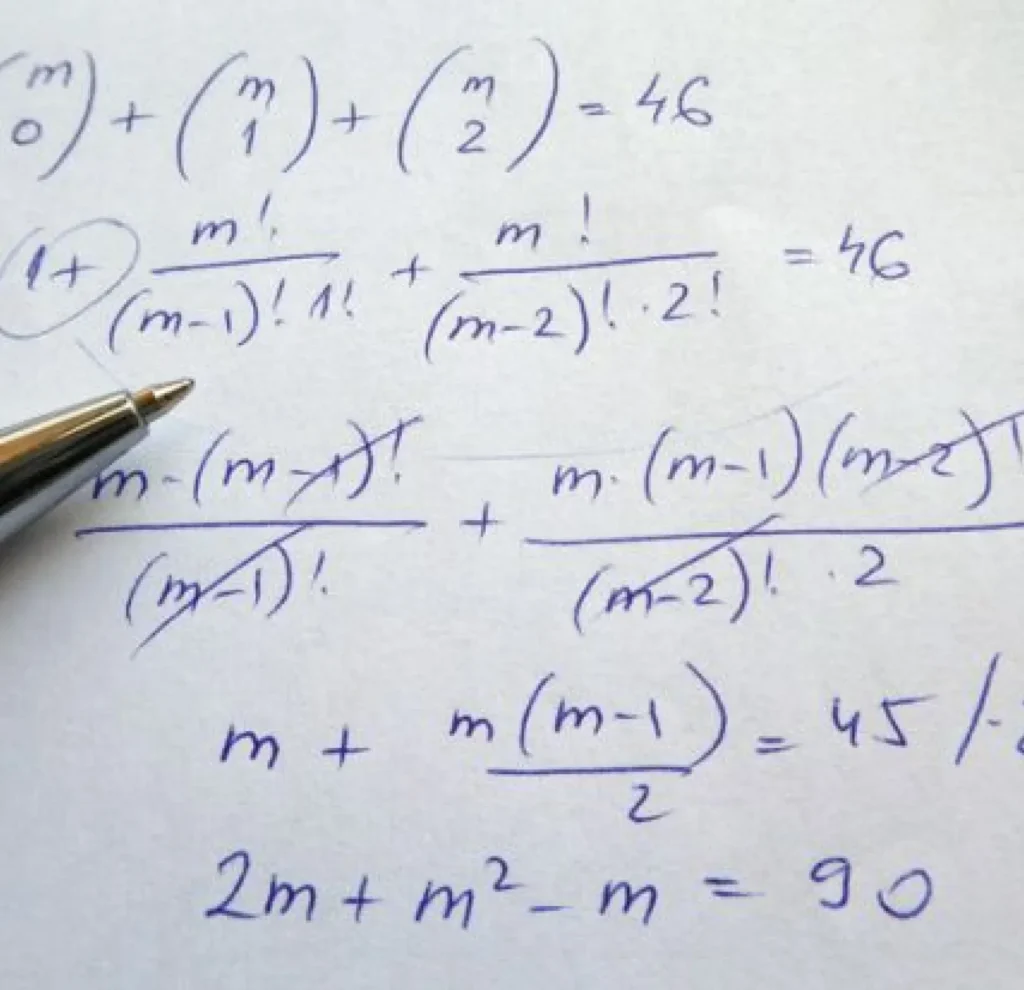 (m 0) + (m 1) + (m 2) = 46
1 + m!/((m-1)! 1!) + m!/((m-2)! · 2!) = 46
m·(m-1)!/(m-1)! + m·(m-1)(m-2)!/((m-2)! · 2)
m + m(m-1)/2 = 45 /·2
2m + m² - m = 90